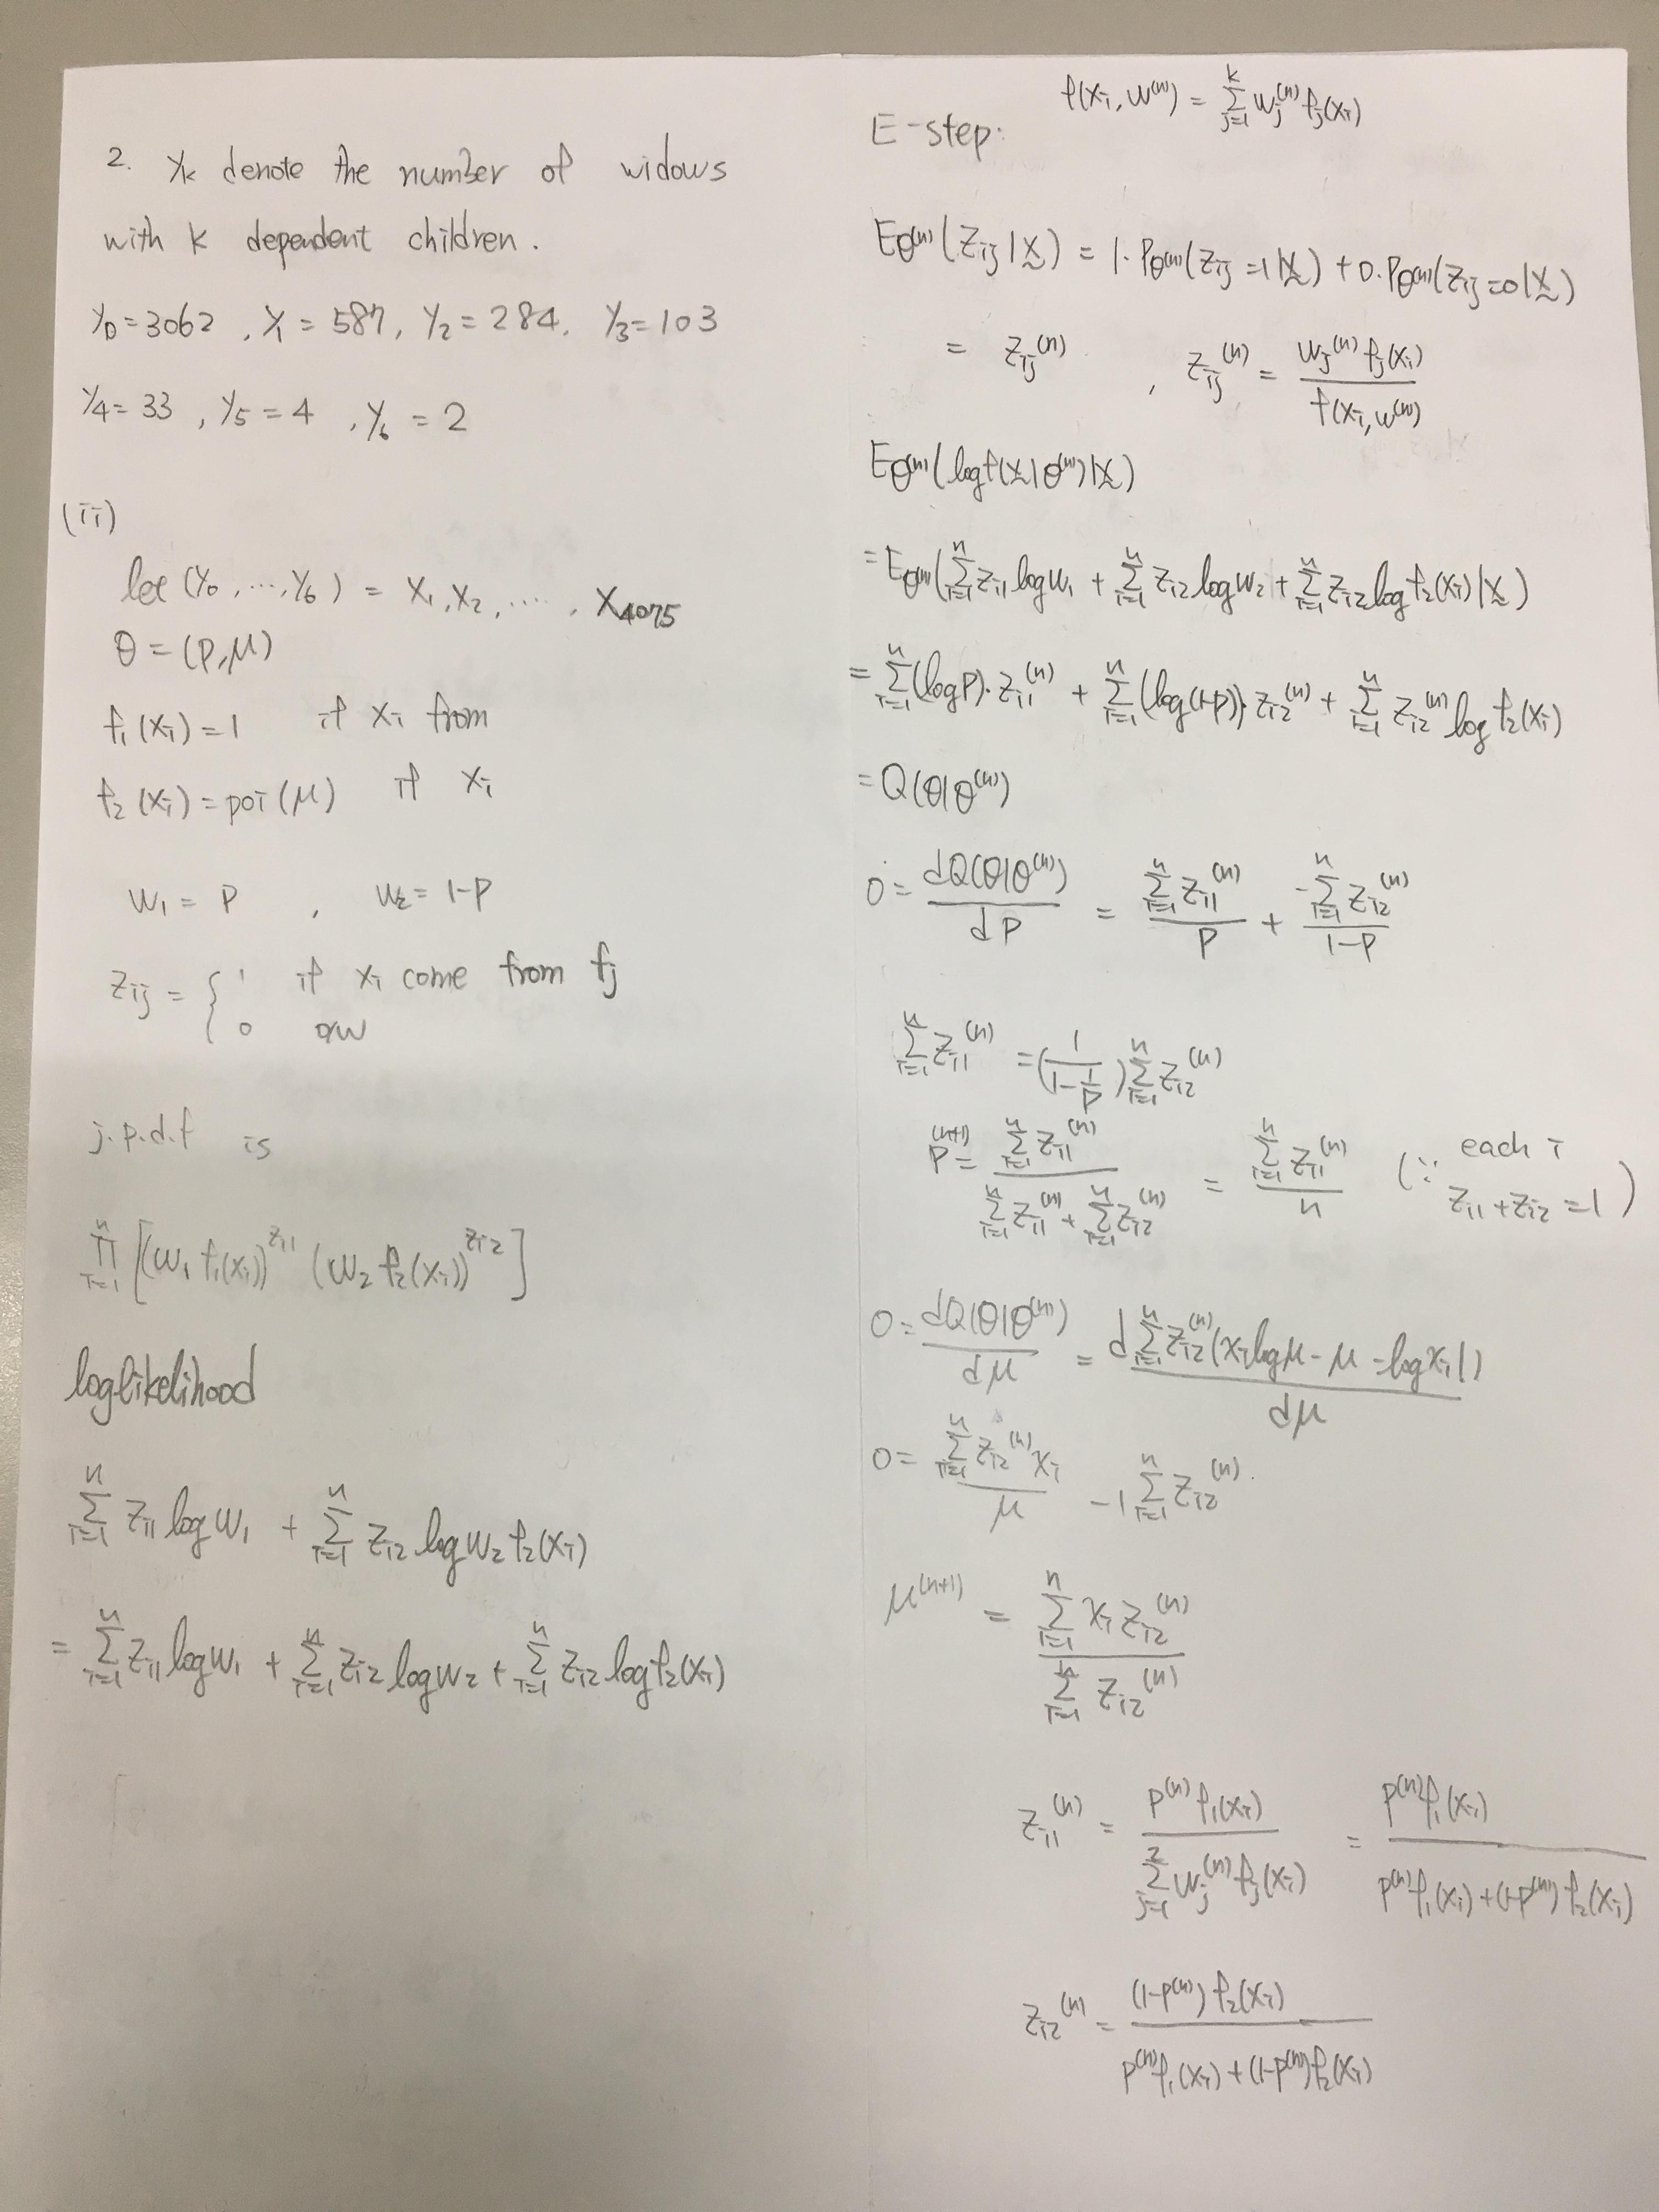 2. Yk denote the number of widows
with k dependent children.
Y0=3062 , Y1 = 587, Y2 = 284, Y3=103
Y4= 33 , Y5 = 4 , Y6 = 2
(ii)
let (Y0 , ..., Y6) = X1, X2, ...., X4075
θ = (P, μ)
f1(xi) = 1 if xi from
f2(xi) = poi(μ) if xi
w1 = P , w2 = 1-P
zij = { 1 if xi come from fj
0 ow
j.p.d.f is
∏_{i=1}^{n} [(w1 f1(xi))^{zi1} (w2 f2(xi))^{zi2}]
loglikelihood
Σ_{i=1}^{n} zi1 log w1 + Σ_{i=1}^{n} zi2 log w2 f2(xi)
= Σ_{i=1}^{n} zi1 log w1 + Σ_{i=1}^{n} zi2 log w2 + Σ_{i=1}^{n} zi2 log f2(xi)
f(xi, w^(n)) = Σ_{j=1}^{k} wj^(n) fj(xi)
E-step:
Eθ^(n)(zij | x) = 1·Pθ^(n)(zij = 1 | x) + 0·Pθ^(n)(zij = 0 | x)
= zij^(n) , zij^(n) = wj^(n) fj(xi) / f(xi, w^(n))
Eθ^(n)(log f(x | θ^(n)) | x)
= Eθ^(n)(Σ_{i=1}^{n} zi1 log w1 + Σ_{i=1}^{n} zi2 log w2 + Σ_{i=1}^{n} zi2 log f2(xi) | x)
= Σ_{i=1}^{n} (log P)·zi1^(n) + Σ_{i=1}^{n} (log(1-P))·zi2^(n) + Σ_{i=1}^{n} zi2^(n) log f2(xi)
= Q(θ | θ^(n))
0 = dQ(θ | θ^(n)) / dP = Σ_{i=1}^{n} zi1^(n) / P + -Σ_{i=1}^{n} zi2^(n) / 1-P
Σ_{i=1}^{n} zi1^(n) = (1 / (1 - 1/P)) Σ_{i=1}^{n} zi2^(n)
P^(n+1) = Σ_{i=1}^{n} zi1^(n) / (Σ_{i=1}^{n} zi1^(n) + Σ_{i=1}^{n} zi2^(n)) = Σ_{i=1}^{n} zi1^(n) / n (∵ each i zi1 + zi2 = 1)
0 = dQ(θ | θ^(n)) / dμ = d Σ_{i=1}^{n} zi2^(n) (xi log μ - μ - log xi!) / dμ
0 = Σ_{i=1}^{n} zi2^(n) xi / μ - 1 Σ_{i=1}^{n} zi2^(n).
μ^(n+1) = Σ_{i=1}^{n} xi zi2^(n) / Σ_{i=1}^{n} zi2^(n)
zi1^(n) = P^(n) f1(xi) / Σ_{j=1}^{2} wj^(n) fj(xi) = P^(n) f1(xi) / P^(n) f1(xi) + (1-P^(n)) f2(xi)
zi2^(n) = (1-P^(n)) f2(xi) / P^(n) f1(xi) + (1-P^(n)) f2(xi)